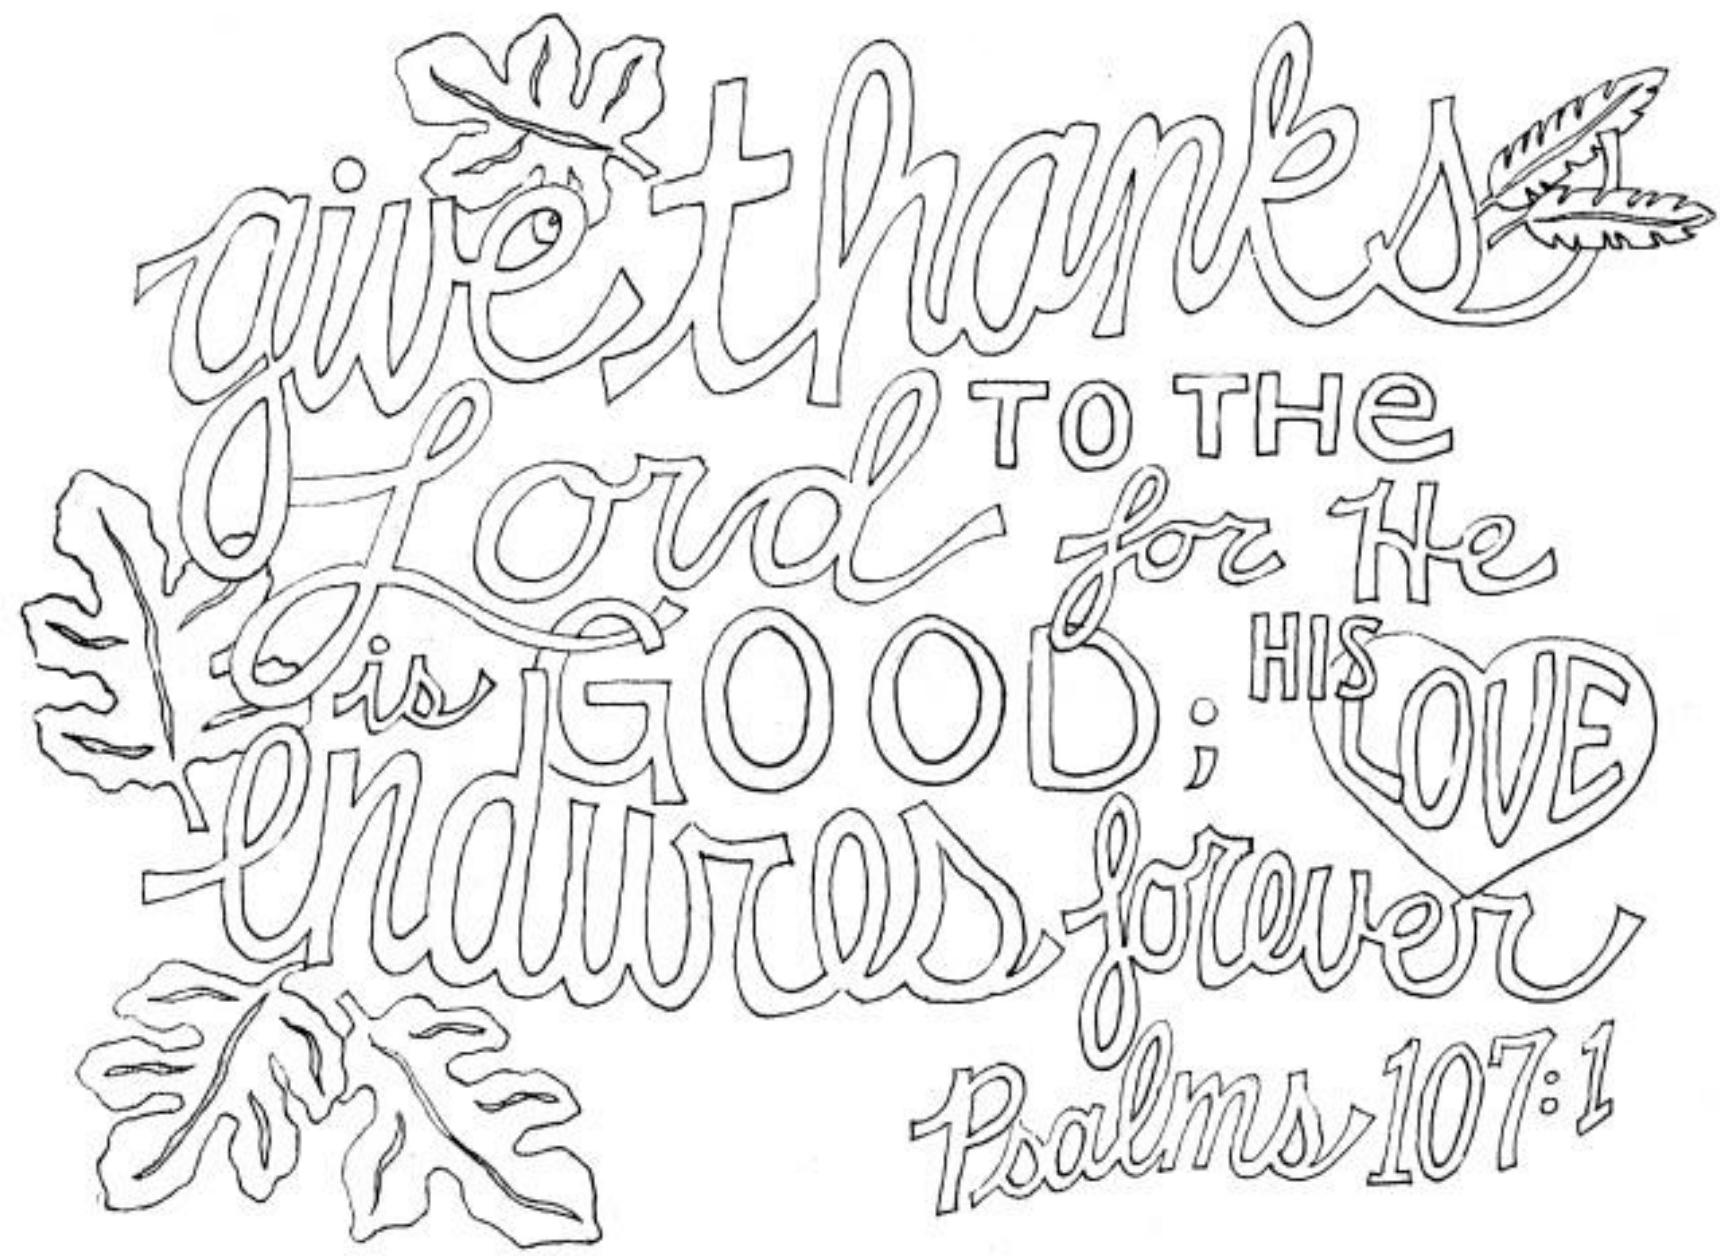 give thanks
TO THe
Lord
for He
is GOOD; HIS LOVE
endures forever
Psalms 107:1